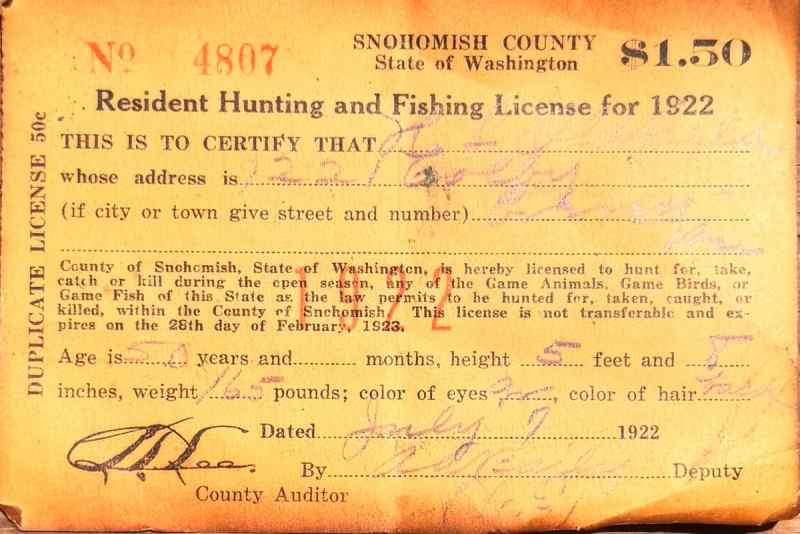 No 4807
SNOHOMISH COUNTY
State of Washington
$1.50
Resident Hunting and Fishing License for 1922
THIS IS TO CERTIFY THAT
whose address is 1221 Colby
(if city or town give street and number)
County of Snohomish, State of Washington, is hereby licensed to hunt for, take,
catch or kill during the open season, any of the Game Animals, Game Birds, or
Game Fish of this State as the law permits to be hunted for, taken, caught, or
killed, within the County of Snohomish. This license is not transferable and ex-
pires on the 28th day of February, 1923.
1922
Age is 50 years and months, height 5 feet and 5
inches, weight 165 pounds; color of eyes, color of hair
Dated July 7 1922
By Deputy
County Auditor
DUPLICATE LICENSE 50c